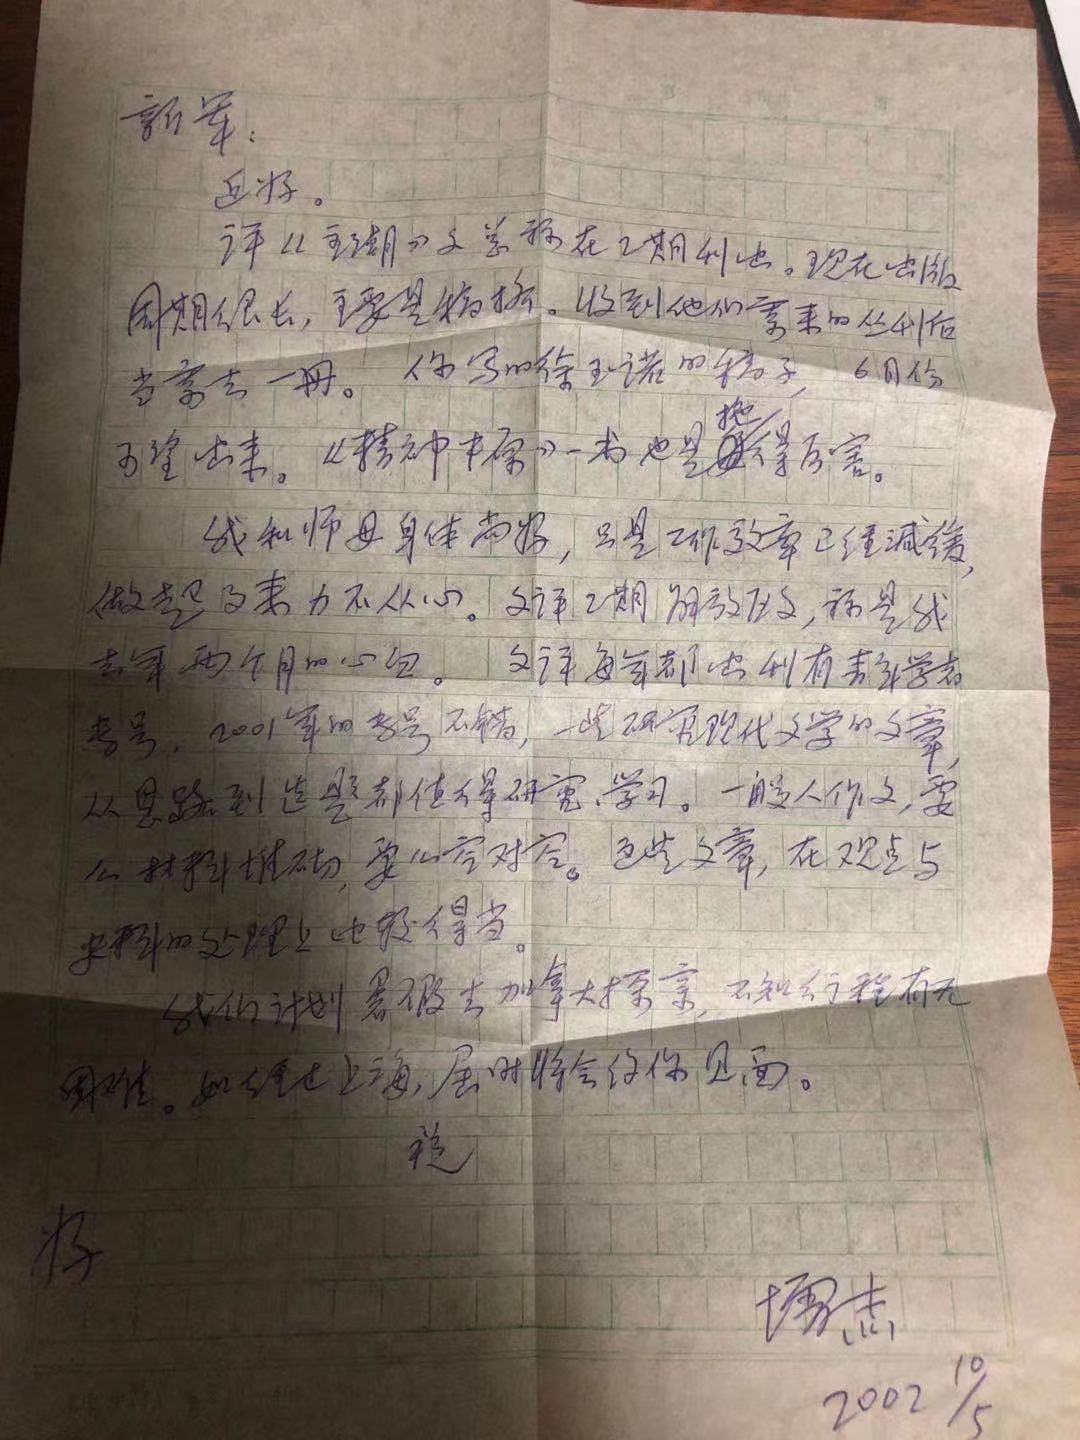 新军：
近好。
评《主潮》文总算在2期刊出。现在出版
周期很长，主要是稿挤。收到他们寄来的丛刊后
当寄去一册。你写的徐玉诺的稿子，6月份
可望出来。《精神中原》一书也是拖得厉害。
我和师母身体尚好，只是工作效率已经减缓，
做起事来力不从心。文评2期 解放区文，算是我
去年两个月的心血。文评每年都出刊有青年学者
专号，2001年的专号不错，一些研究现代文学的文章，
从思路到选题都值得研究、学习。一般人作文，要
么材料堆砌，要么空对空。这些文章，在观点与
史料的处理上也较得当。
我们计划暑假去加拿大探亲，不知行程有无
困难。如经过上海，届时将会约你见面。
祝
好
2002 10/5